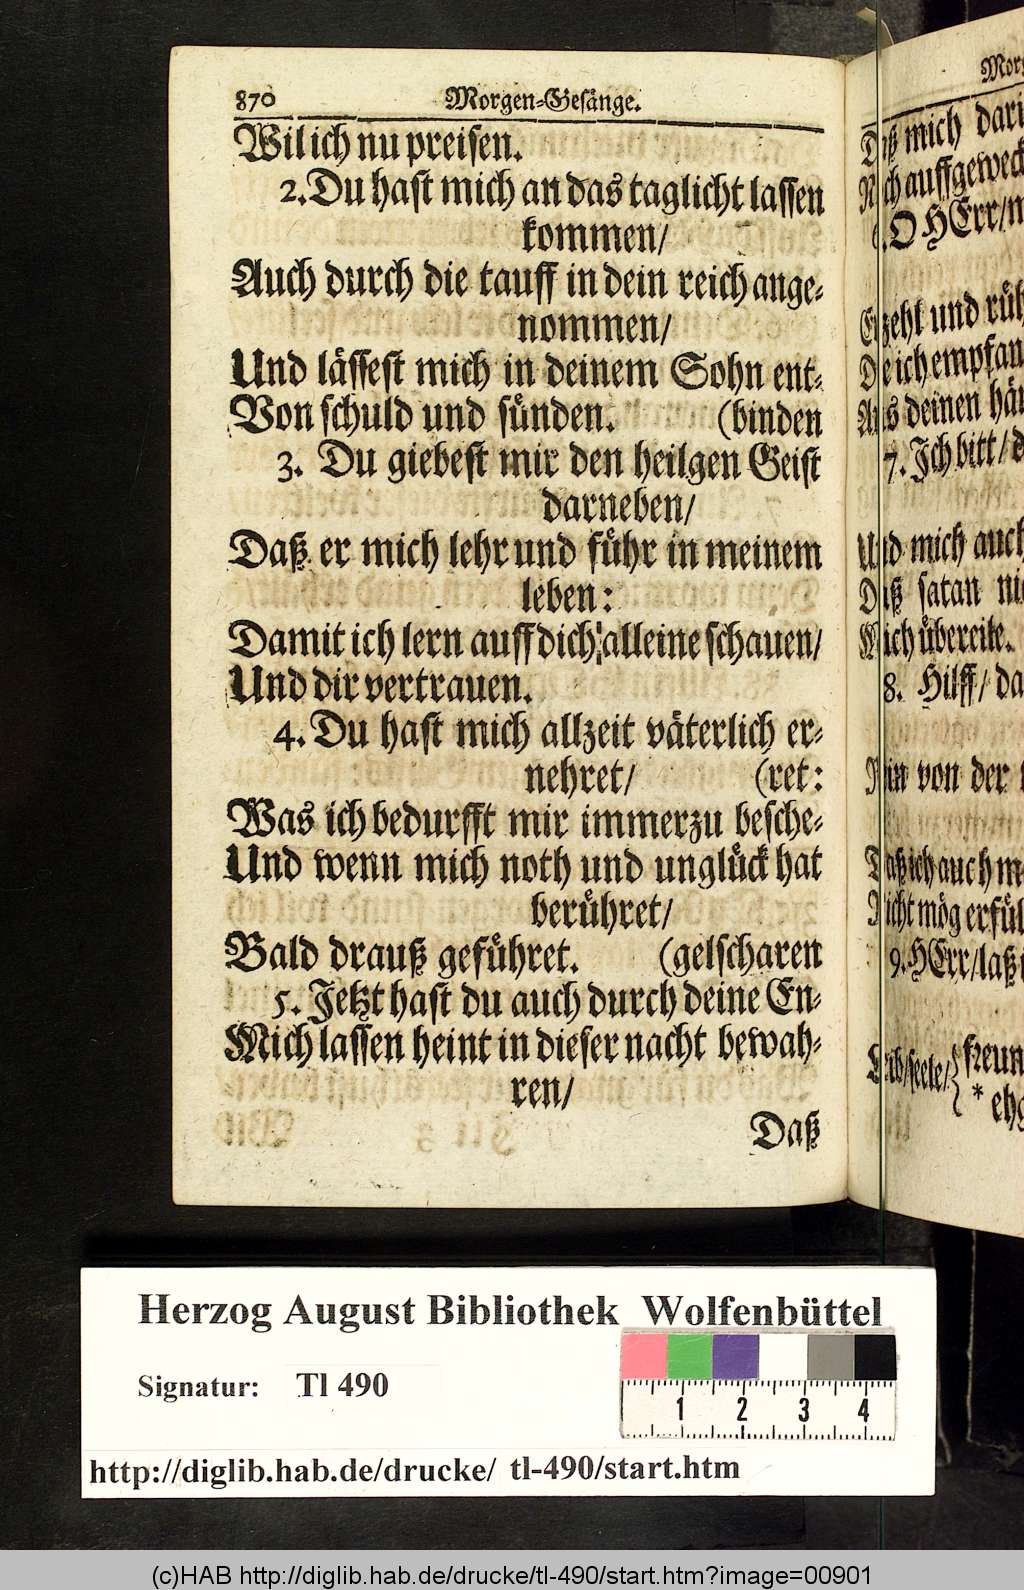 870 Morgen-Gesänge.
Wil ich nu preisen.
2. Du hast mich an das taglicht lassen
kommen/
Auch durch die tauff in dein reich ange-
nommen/
Und lässest mich in deinem Sohn ent-
Von schuld und sünden. (binden
3. Du giebest mir den heilgen Geist
darneben/
Daß er mich lehr und führ in meinem
leben:
Damit ich lern auff dich alleine schauen/
Und dir vertrauen.
4. Du hast mich allzeit väterlich er-
nehret/ (ret:
Was ich bedurfft mir immerzu besche-
Und wenn mich noth und unglück hat
berühret/
Bald drauß geführet. (gelscharen
5. Jetzt hast du auch durch deine En-
Mich lassen heint in dieser nacht bewah-
ren/
Daß
mich
auffgeweck
O HErr/
und
ich empfan
deinen
7. Ich bitt/
mich auch
satan
übereile.
8. Hilff/
von der
ich auch
mög erfül
9. HErr/laß
seele/
Herzog August Bibliothek Wolfenbüttel
Signatur: Tl 490
1 2 3 4
http://diglib.hab.de/drucke/ tl-490/start.htm
(c)HAB http://diglib.hab.de/drucke/tl-490/start.htm?image=00901